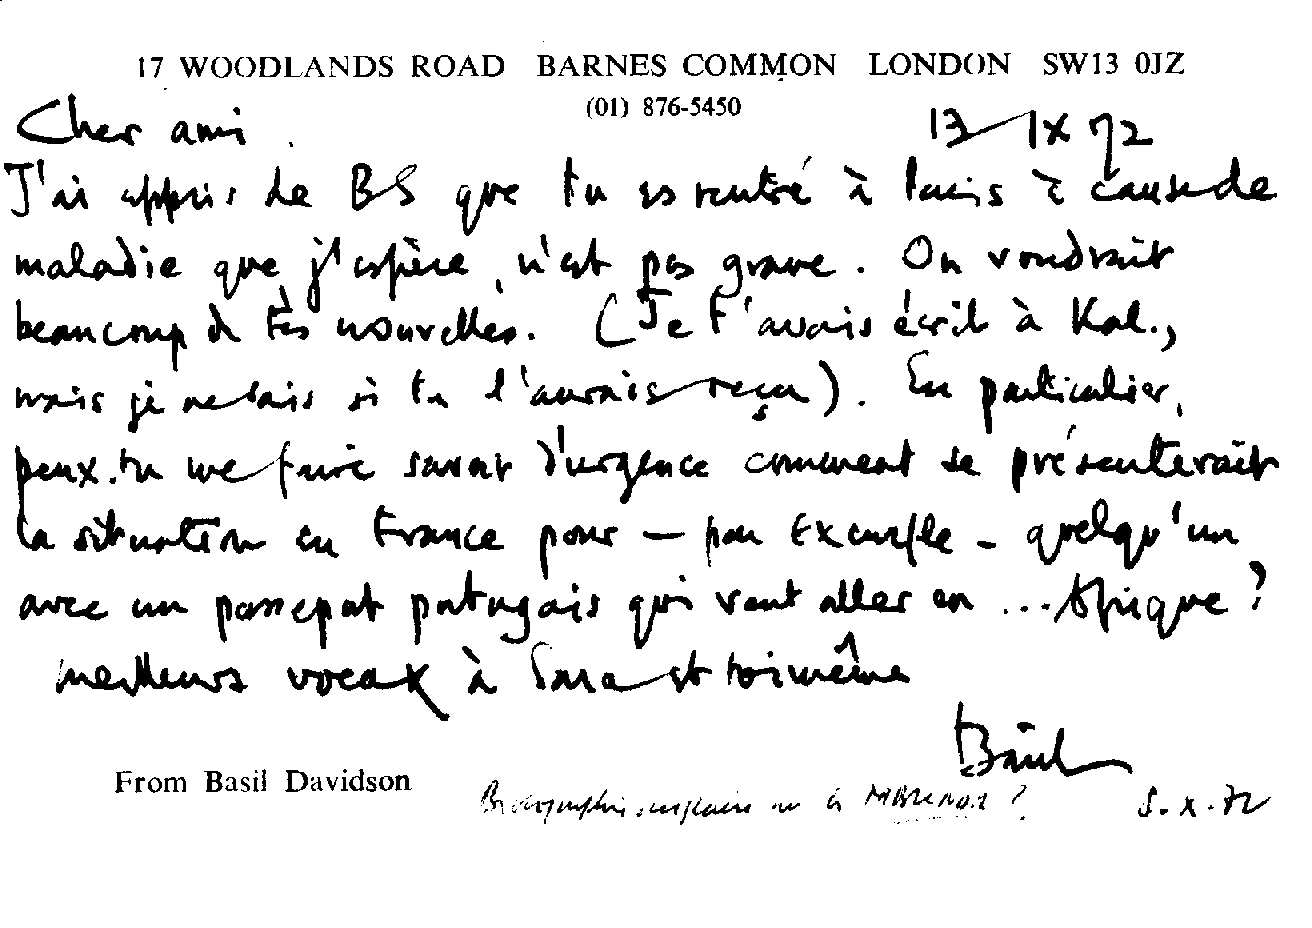 17 WOODLANDS ROAD BARNES COMMON LONDON SW13 0JZ
(01) 876-5450
Cher ami. 13 IX 72
J'ai appris de BS que tu es rentré à Paris à cause de
maladie que j'espère, n'est pas grave. On voudrait
beaucoup de tes nouvelles. (Je t'avais écrit à Kal.,
mais je ne sais si tu l'aurais reçu). En particulier,
peux-tu me faire savoir d'urgence comment se présenterait
la situation en France pour - par exemple - quelqu'un
avec un passeport portugais qui veut aller en ... Afrique?
meilleurs voeux à Sara et toi même
Basil
From Basil Davidson
5.X.72